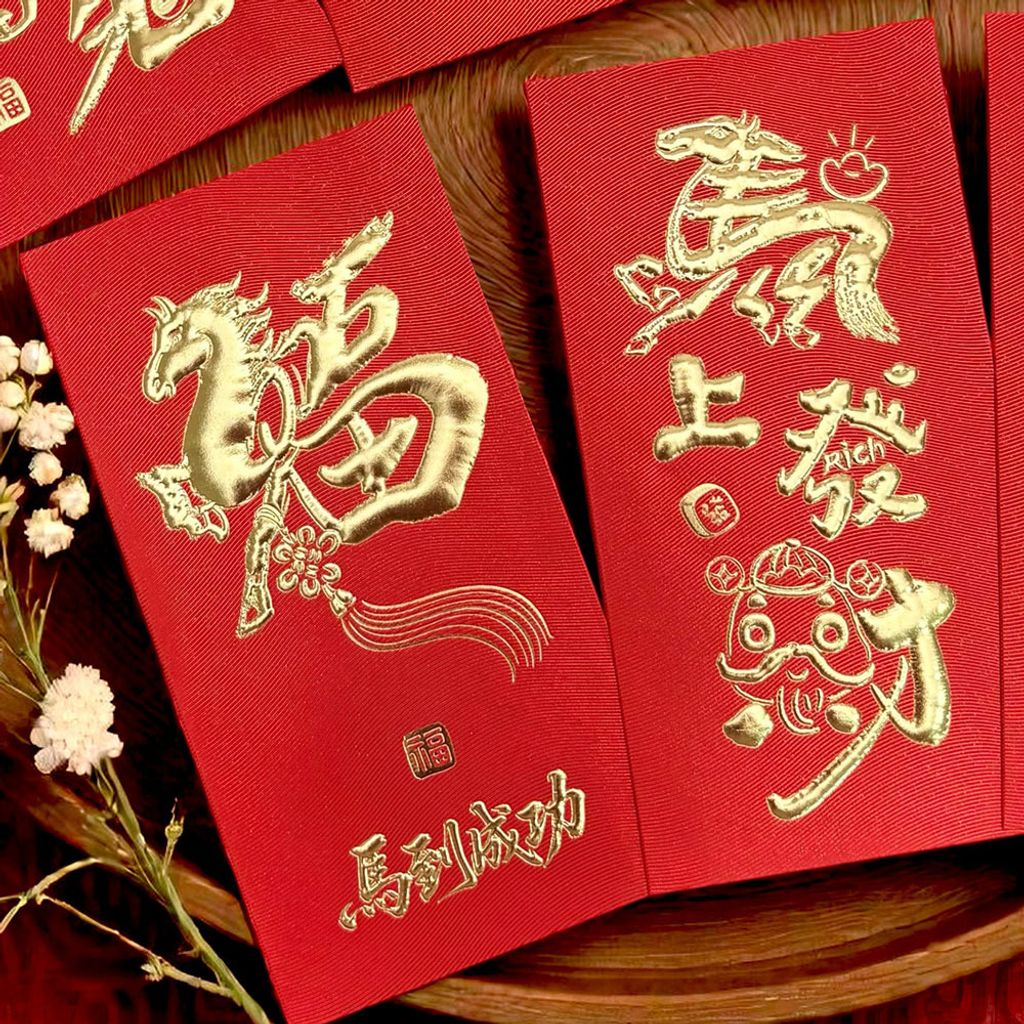 福
福
馬到成功
馬
上發
Rich
財
福